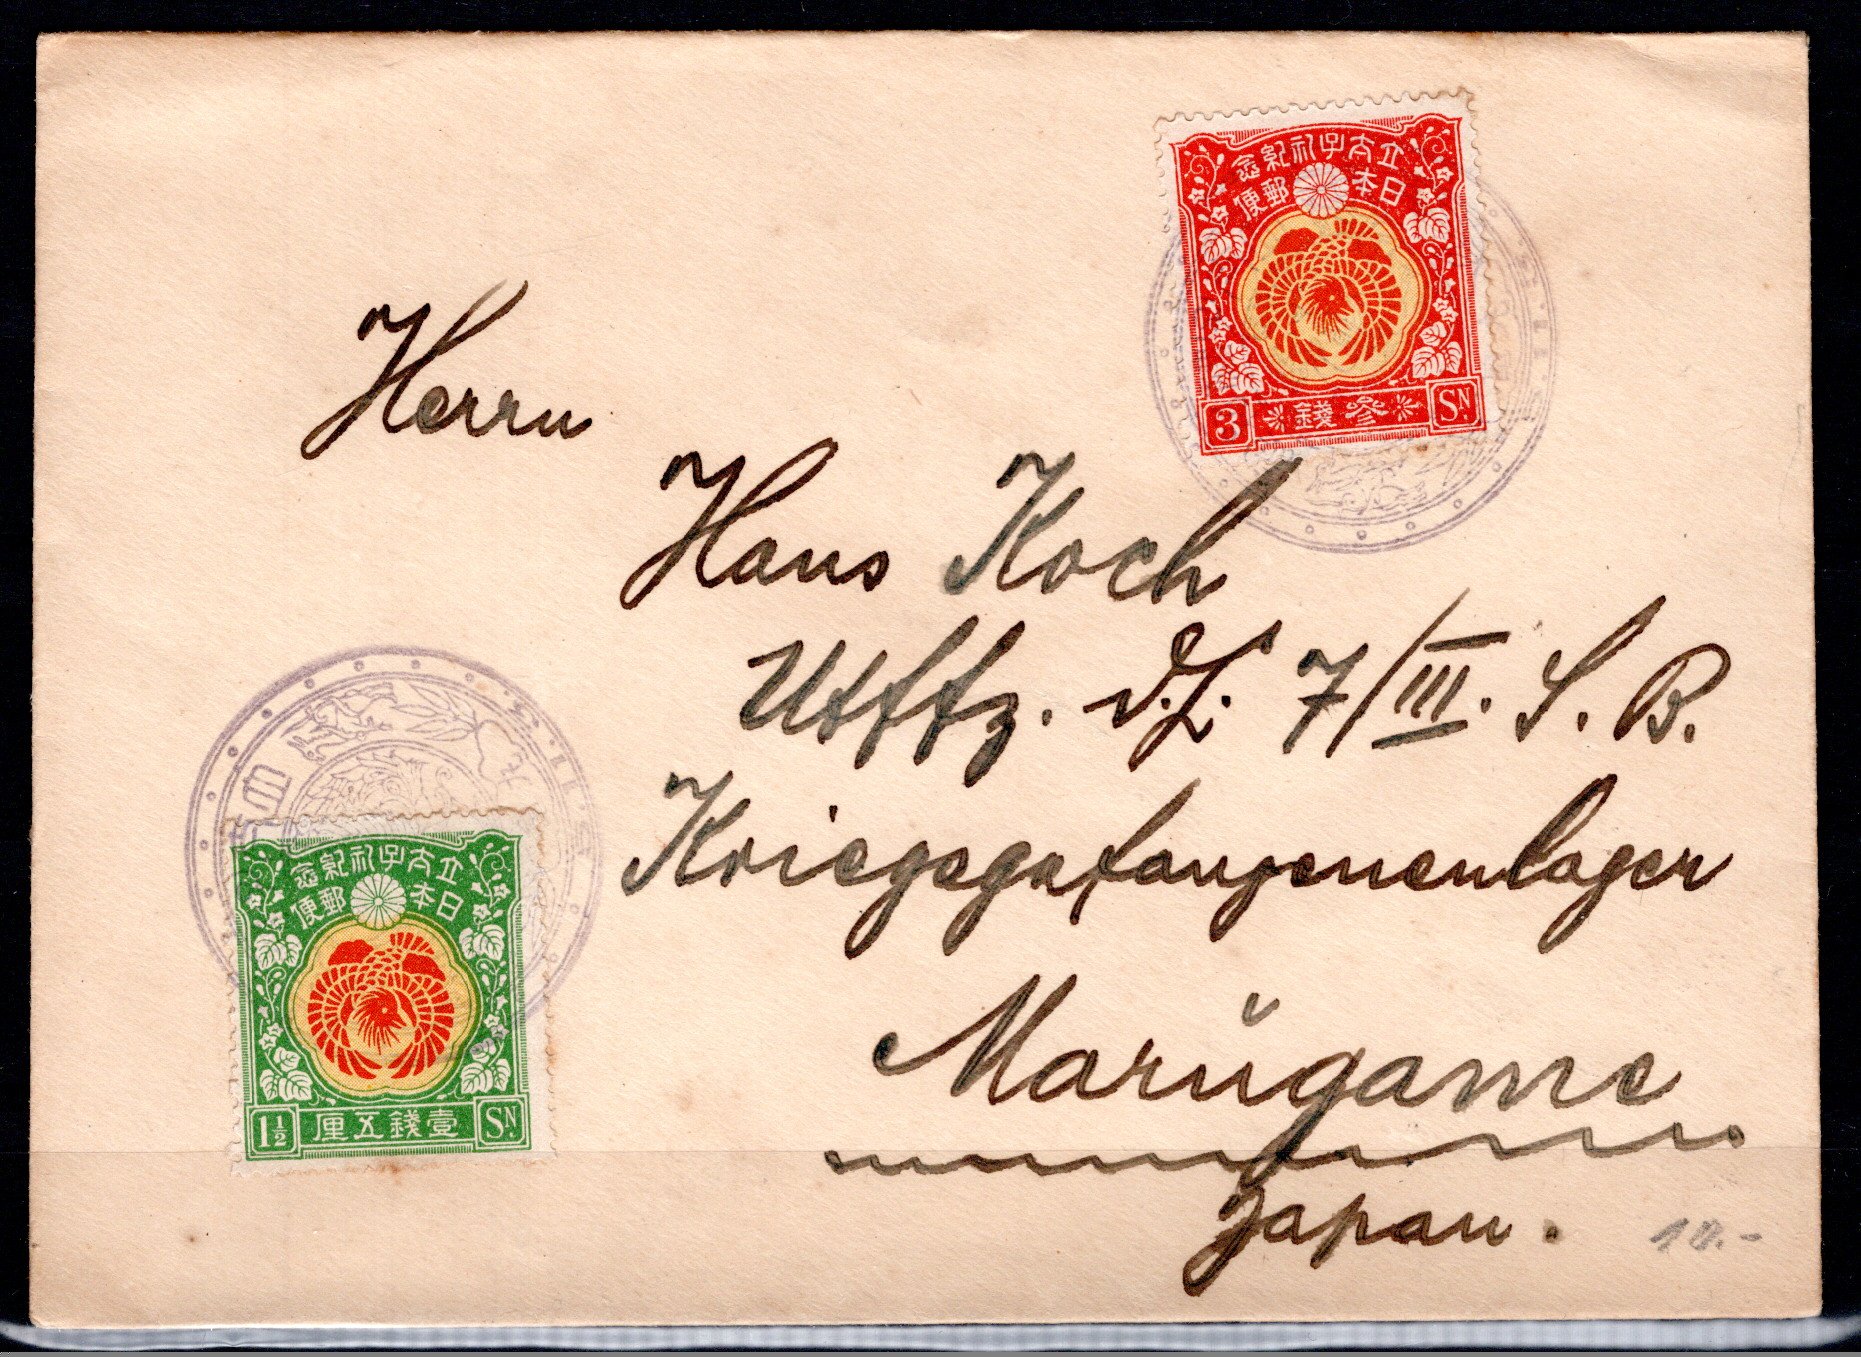 立太子礼紀念
日本郵便
3 参銭 SN.
Herrn
Hans Koch
Utffz. d.L. 7/III. S. B.
Kriegsgefangenenlager
Marŭgame
Japan.
立太子礼紀念
日本郵便
1½ 壹銭五厘 SN.
10.-